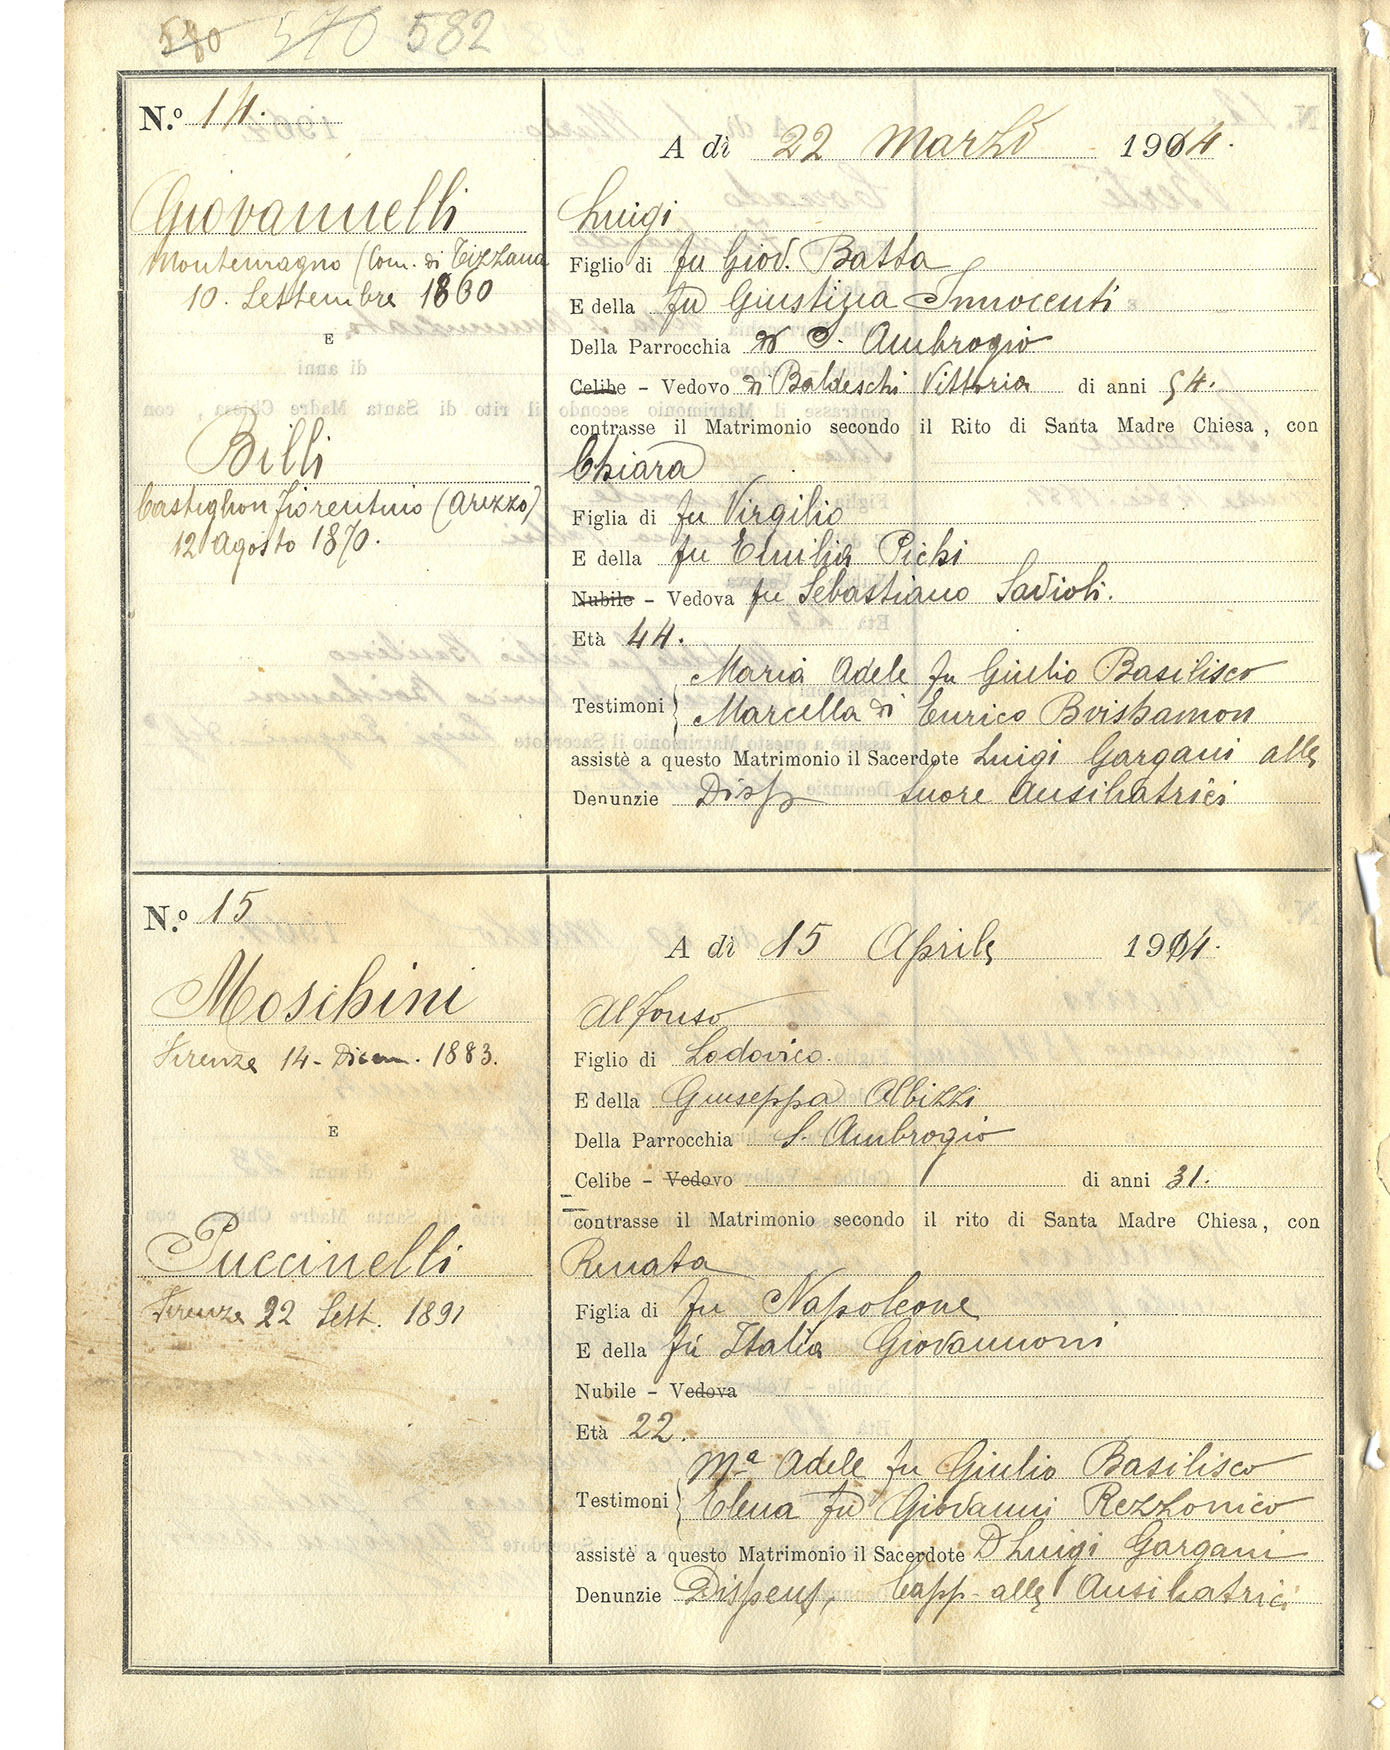 570 570 582
N.º 14.
A dì 22 Marzo 1914.
Giovannelli
Montemagno (Com. di Tizzana
10. Settembre 1860
E
Billi
Castiglion Fiorentino (Arezzo)
12 Agosto 1870.
Luigi
Figlio di fu Giov. Batta
E della fu Giustina Innocenti
Della Parrocchia di S. Ambrogio
Celibe - Vedovo di Baldeschi Vittoria di anni 54.
contrasse il Matrimonio secondo il Rito di Santa Madre Chiesa, con
Chiara
Figlia di fu Virgilio
E della fu Emilia Pichi
Nubile - Vedova fu Sebastiano Savioli.
Età 44.
Testimoni Maria Adele fu Giulio Basilisco
Marcella di Enrico
assistè a questo Matrimonio il Sacerdote Luigi Gargani alle
Denunzie Disp Suore Ausiliatrici
N.º 15
A dì 15 Aprile 1914.
Moschini
Firenze 14 - Dicem. 1883.
E
Puccinelli
Firenze 22 Sett. 1891
Alfonso
Figlio di Lodovico.
E della Giuseppa Albizzi
Della Parrocchia S. Ambrogio
Celibe - Vedovo di anni 31.
contrasse il Matrimonio secondo il rito di Santa Madre Chiesa, con
Renata
Figlia di fu Napoleone
E della fu Italia Giovannoni
Nubile - Vedova
Età 22.
Testimoni Mª Adele fu Giulio Basilisco
Elena fu Giovanni Rezzonico
assistè a questo Matrimonio il Sacerdote D Luigi Gargani
Denunzie Dispens, Capp. alle Ausiliatrici